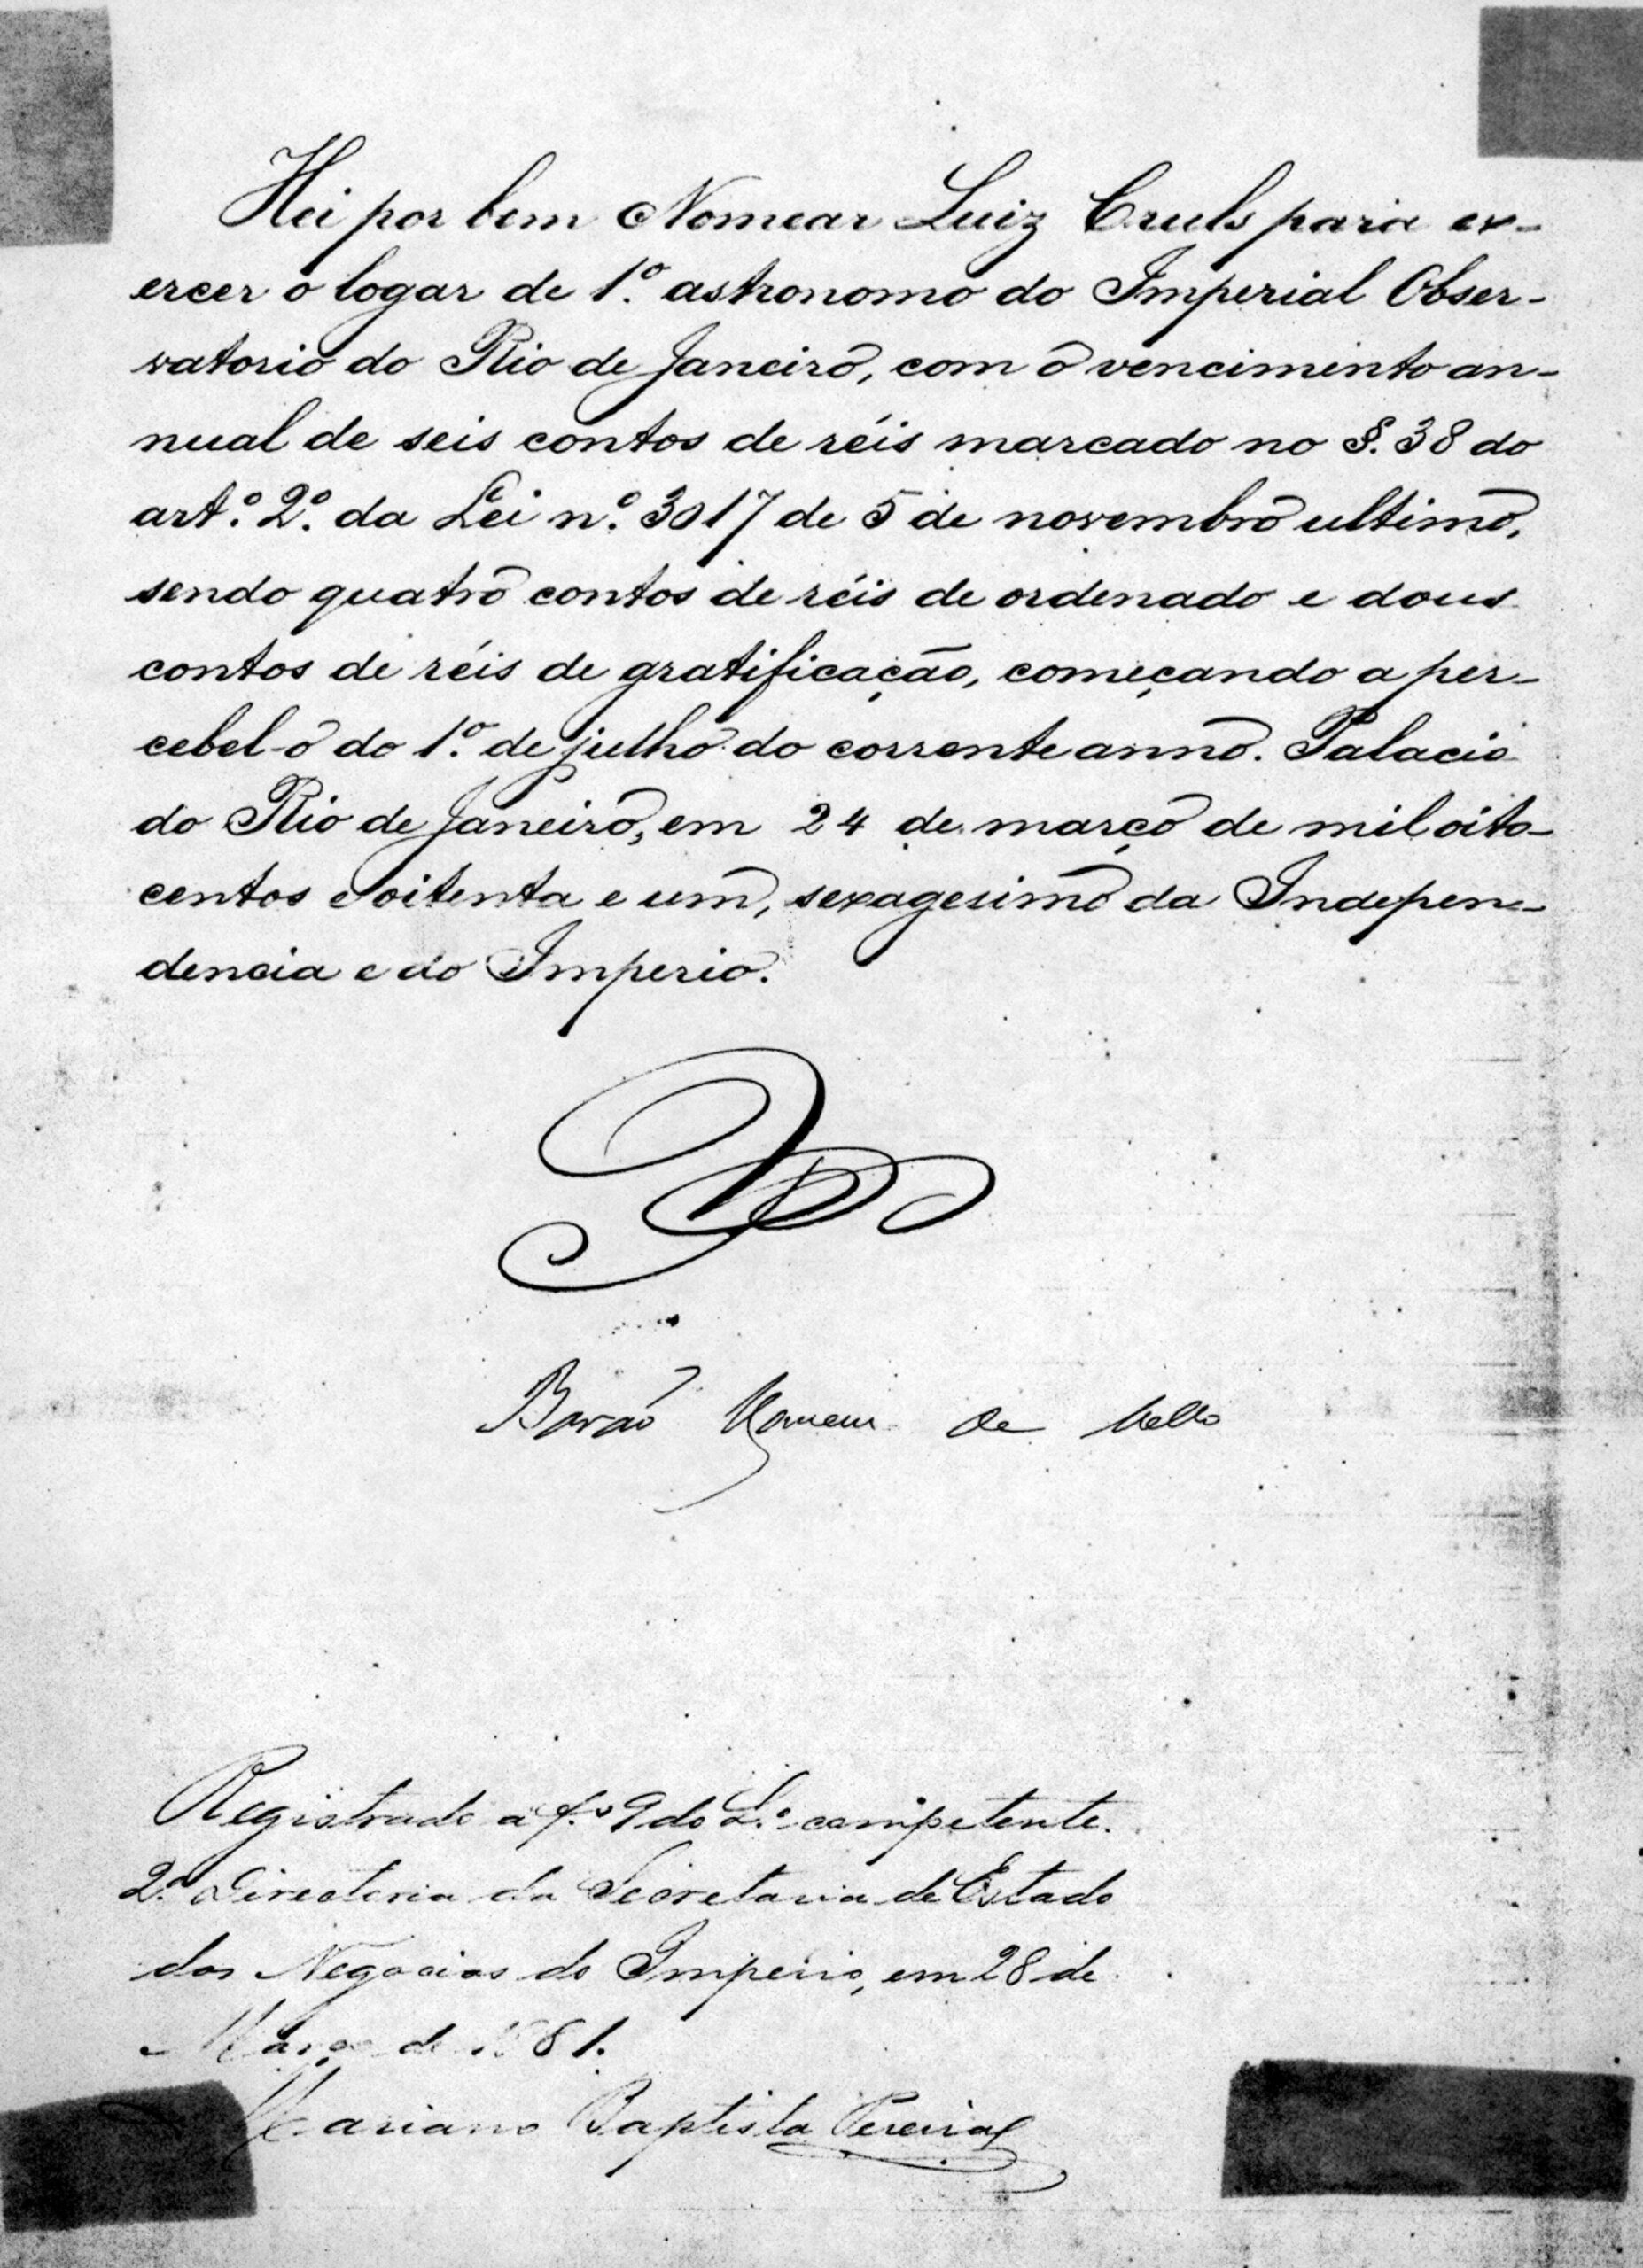 Hei por bem Nomear Luiz Cruls para ex-
ercer o logar de 1º. astronomo do Imperial Obser-
vatorio do Rio de Janeiro, com o vencimento an-
nual de seis contos de réis marcado no §. 38 do
art.º 2º. da Lei n.º 3017 de 5 de novembro ultimo,
sendo quatro contos de réis de ordenado e dous
contos de réis de gratificação, começando a per-
cebel-o do 1º. de julho do corrente anno. Palacio
do Rio de Janeiro, em 24 de março de mil oito-
centos e oitenta e um, sexagesimo da Indepen-
dencia e do Imperio.
Barão Homem de Mello
Registrado a f.º 9 do L.º competente.
2ª Directoria da Secretaria de Estado
dos Negocios do Imperio, em 28 de
Março de 1881.
Mariano Baptista Pereira